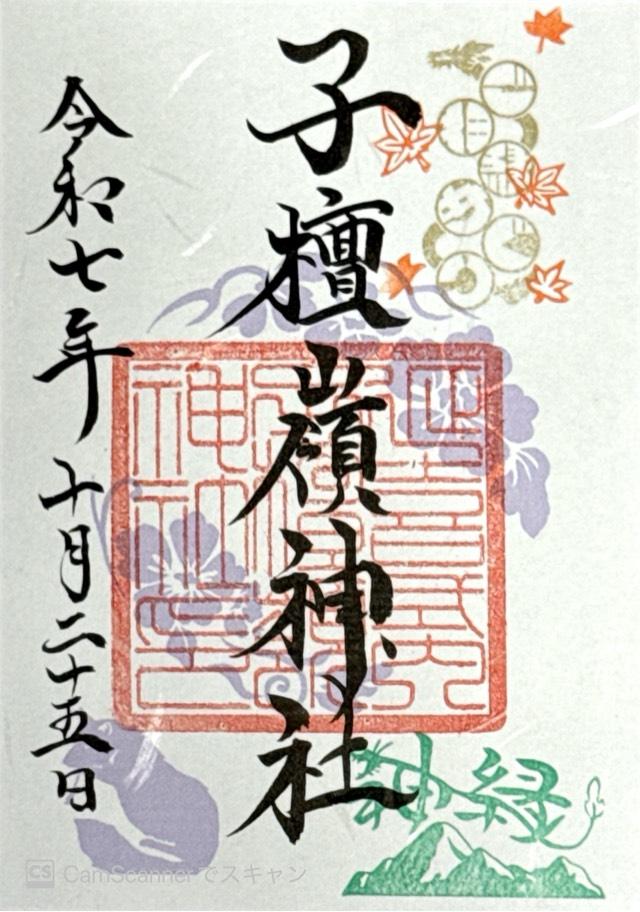 子檀嶺神社
令和七年十月二十五日
神緑
CS CamScannerでスキャン